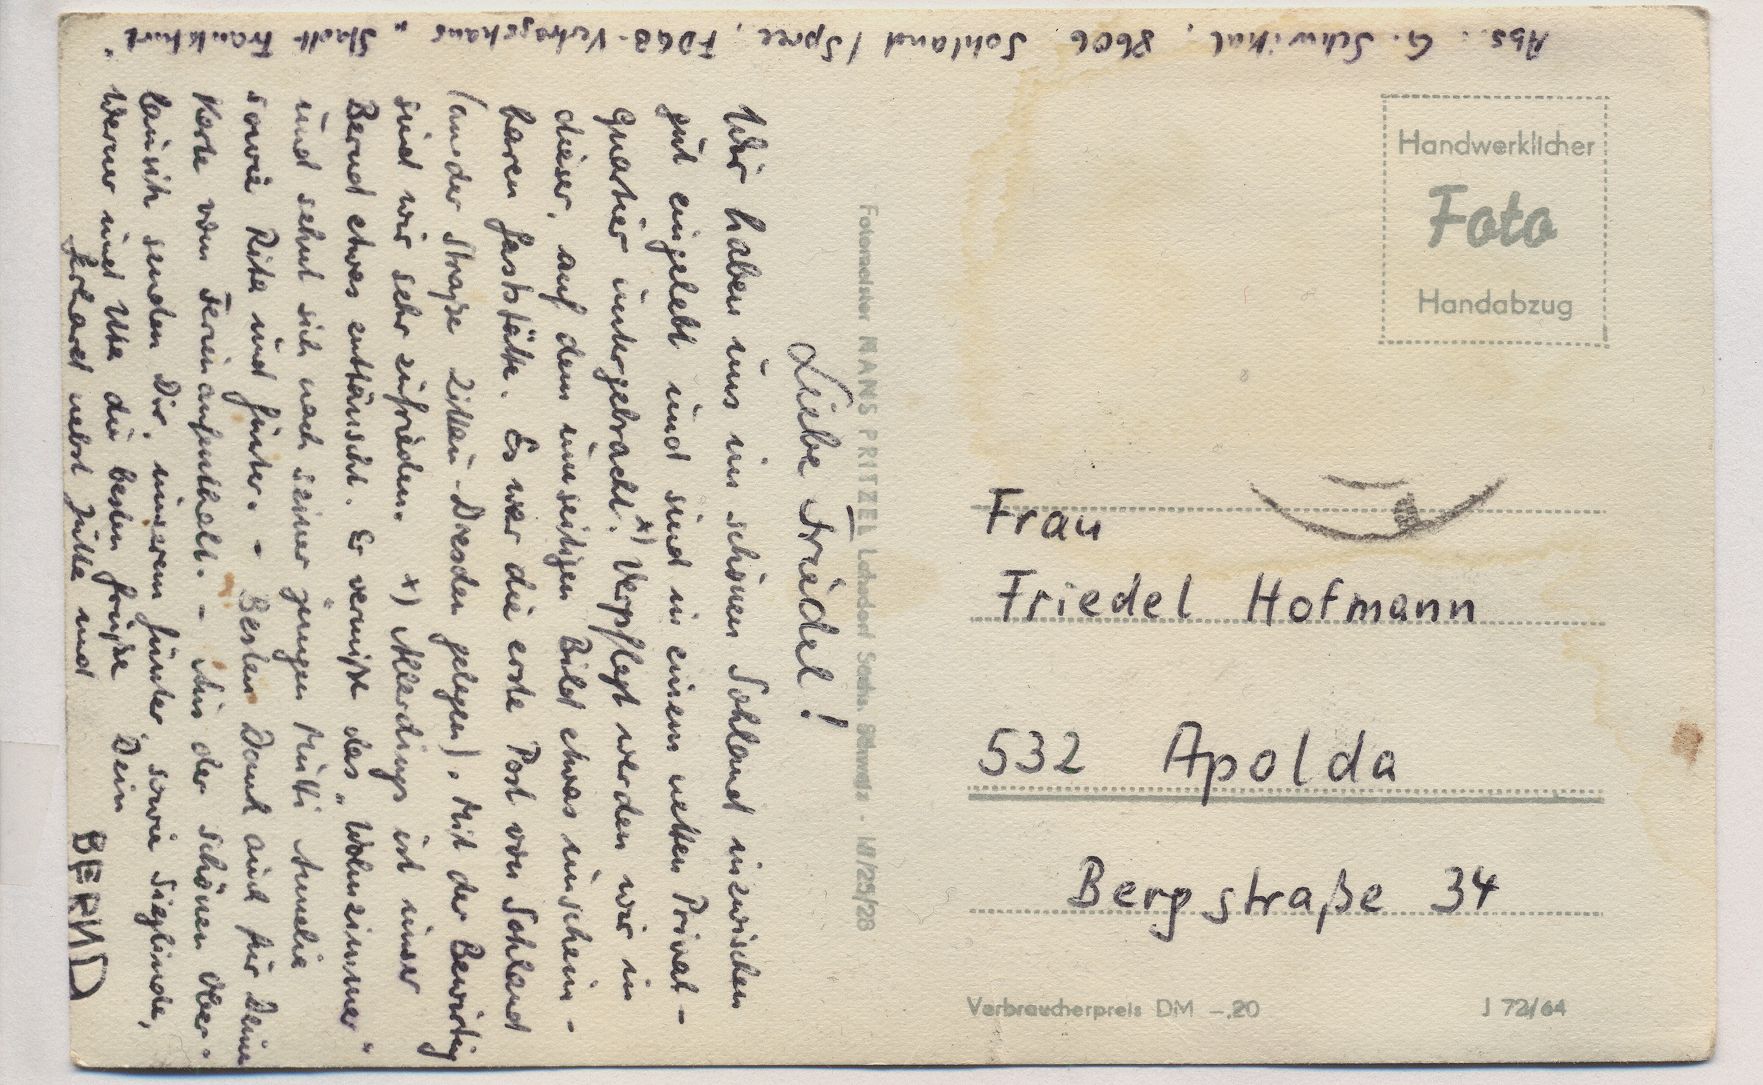 Abs.: G. Schwikal, 8606 Sohland / Spree, FDGB-Vertragshaus „Stadt Frankfurt"
Liebe Friedel!
Wir haben uns im schönen Sohland inzwischen
gut eingelebt und sind in einem netten Privat-
quartier untergebracht. x) Verpflegt werden wir in
dieser, auf dem umseitigen Bild etwas unschein-
baren Gaststätte. Es war die erste Post von Sohland
(an der Straße Zittau-Dresden gelegen). Mit der Bewirtg
sind wir sehr zufrieden. x) Allerdings ist unser
Bernd etwas enttäuscht. Er vermißt das „Wohnzimmer"
und sehnt sich nach seiner jungen Mutti Amelie
sowie Rita und Günter. - Besten Dank auch für Deine
Karte vom Ferienaufenthalt. - Aus der schönen Ober-
lausitz senden Dir, unserem Günter, sowie Sieglinde,
Werner und Ute die besten Grüße Dein
Erhard nebst Jutta und
BERND
Fotomeister HANS PRITZEL Lohsdorf Sächs. Schweiz - III/25/28
Handwerklicher
Foto
Handabzug
Frau
Friedel Hofmann
532 Apolda
Bergstraße 34
Verbraucherpreis DM -.20
J 72/64